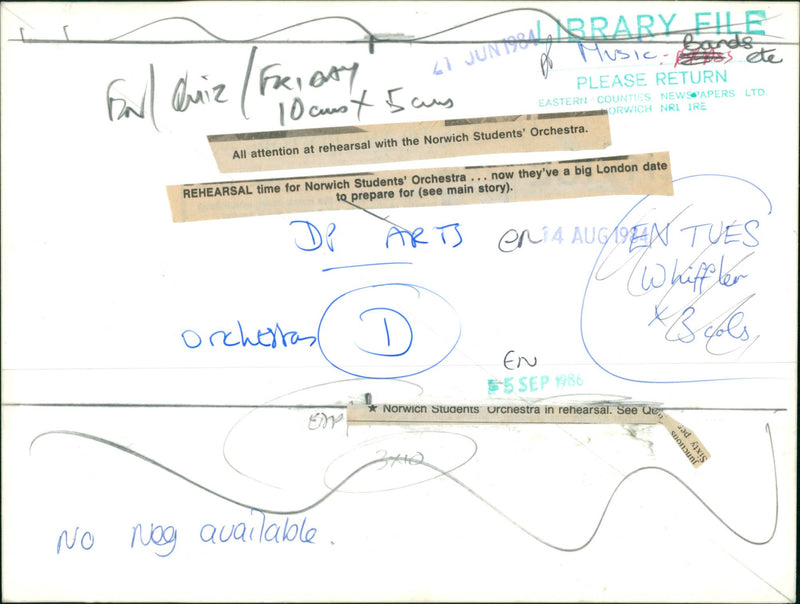 LIBRARY FILE
JUN 1984
Music - Bands etc
PLEASE RETURN
EASTERN COUNTIES NEWSPAPERS LTD.
NORWICH NR1 1RE
EN / Quiz / FRIDAY
10 cms x 5 cms
All attention at rehearsal with the Norwich Students' Orchestra.
REHEARSAL time for Norwich Students' Orchestra . . . now they've a big London date
to prepare for (see main story).
DP ARTS
EN 14 AUG 1984
EN TUES
Whiffler
x 3 cols
Orchestras D
EN
5 SEP 1986
EDP
★ Norwich Students' Orchestra in rehearsal. See
junctions
Sixty per
3x10
No Neg available.